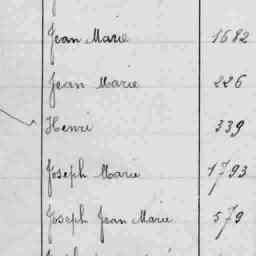 Jean Marie 1682
Jean Marie 226
Henri 339
Joseph Marie 1793
Joseph Jean Marie 579